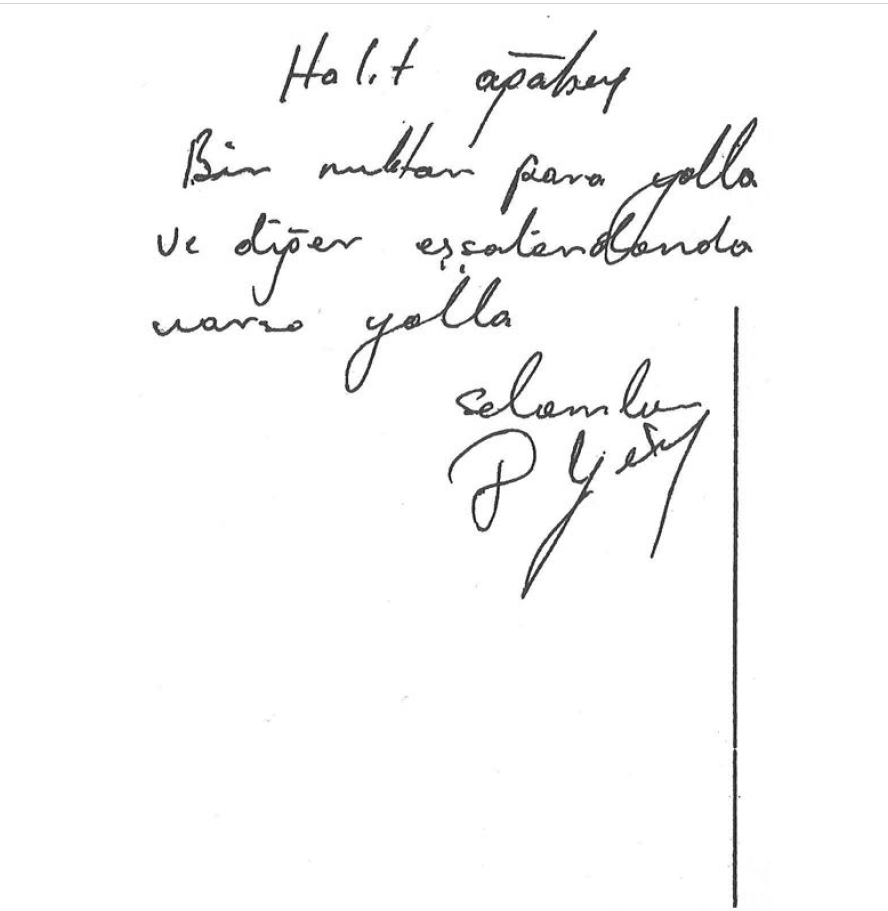 Halit ağabey
Bir miktar para yolla
ve diğer eşsalarıdlanda
varsa yolla
selamlar